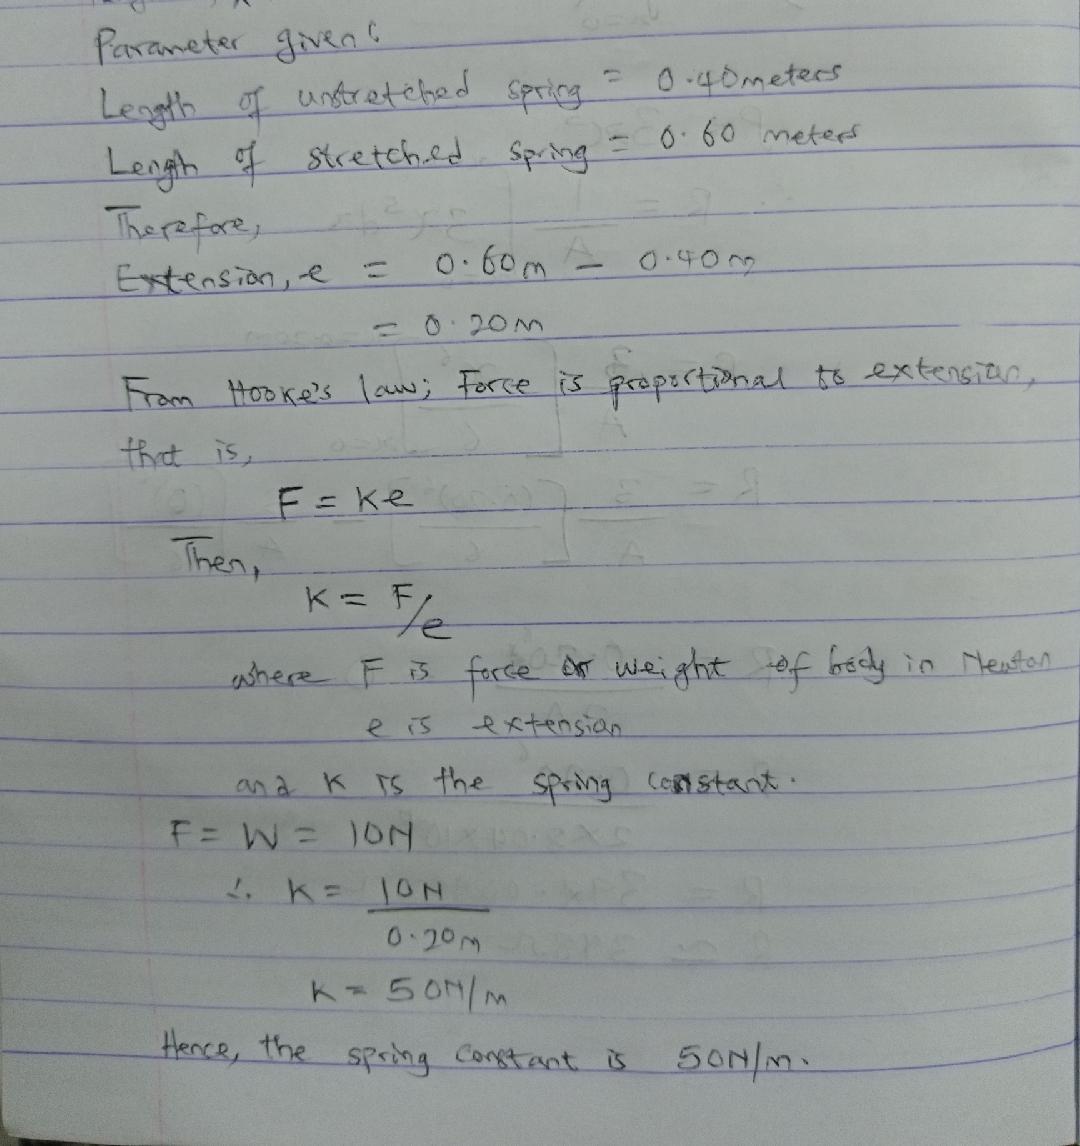 Parameter given:
Length of unstretched spring = 0.40meters
Lengh of stretched spring = 0.60 meters
Therefore,
Extension, e = 0.60m - 0.40m
= 0.20m
From Hooke's law; Force is proportional to extension,
that is,
F = Ke
Then,
K = F/e
where F is force or weight of body in Newton
e is extension
and K is the spring constant.
F = W = 10N
∴ K = 10N
0.20m
K = 50N/m
Hence, the spring constant is 50N/m.